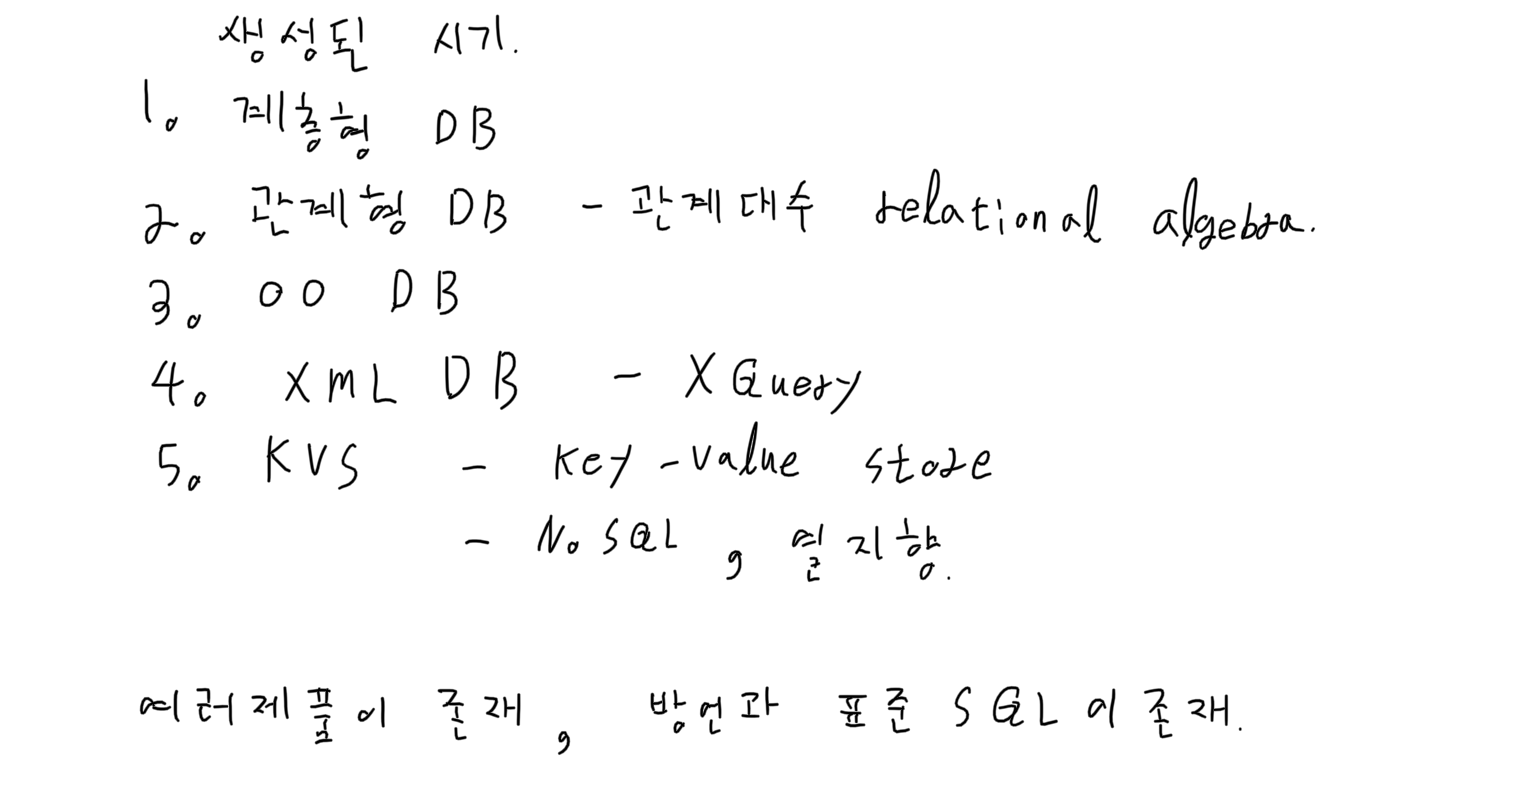 생성된 시기.
1. 계층형 DB
2. 관계형 DB - 관계대수 relational algebra.
3. OO DB
4. XML DB - XQuery
5. KVS - Key-value store
- NoSQL, 열지향.
여러제품이 존재, 방언과 표준 SQL이 존재.